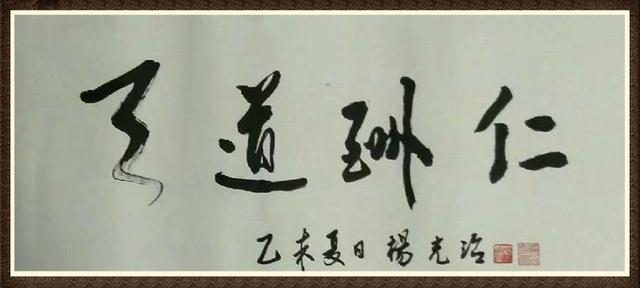 天道酬仁
乙未夏日 楊